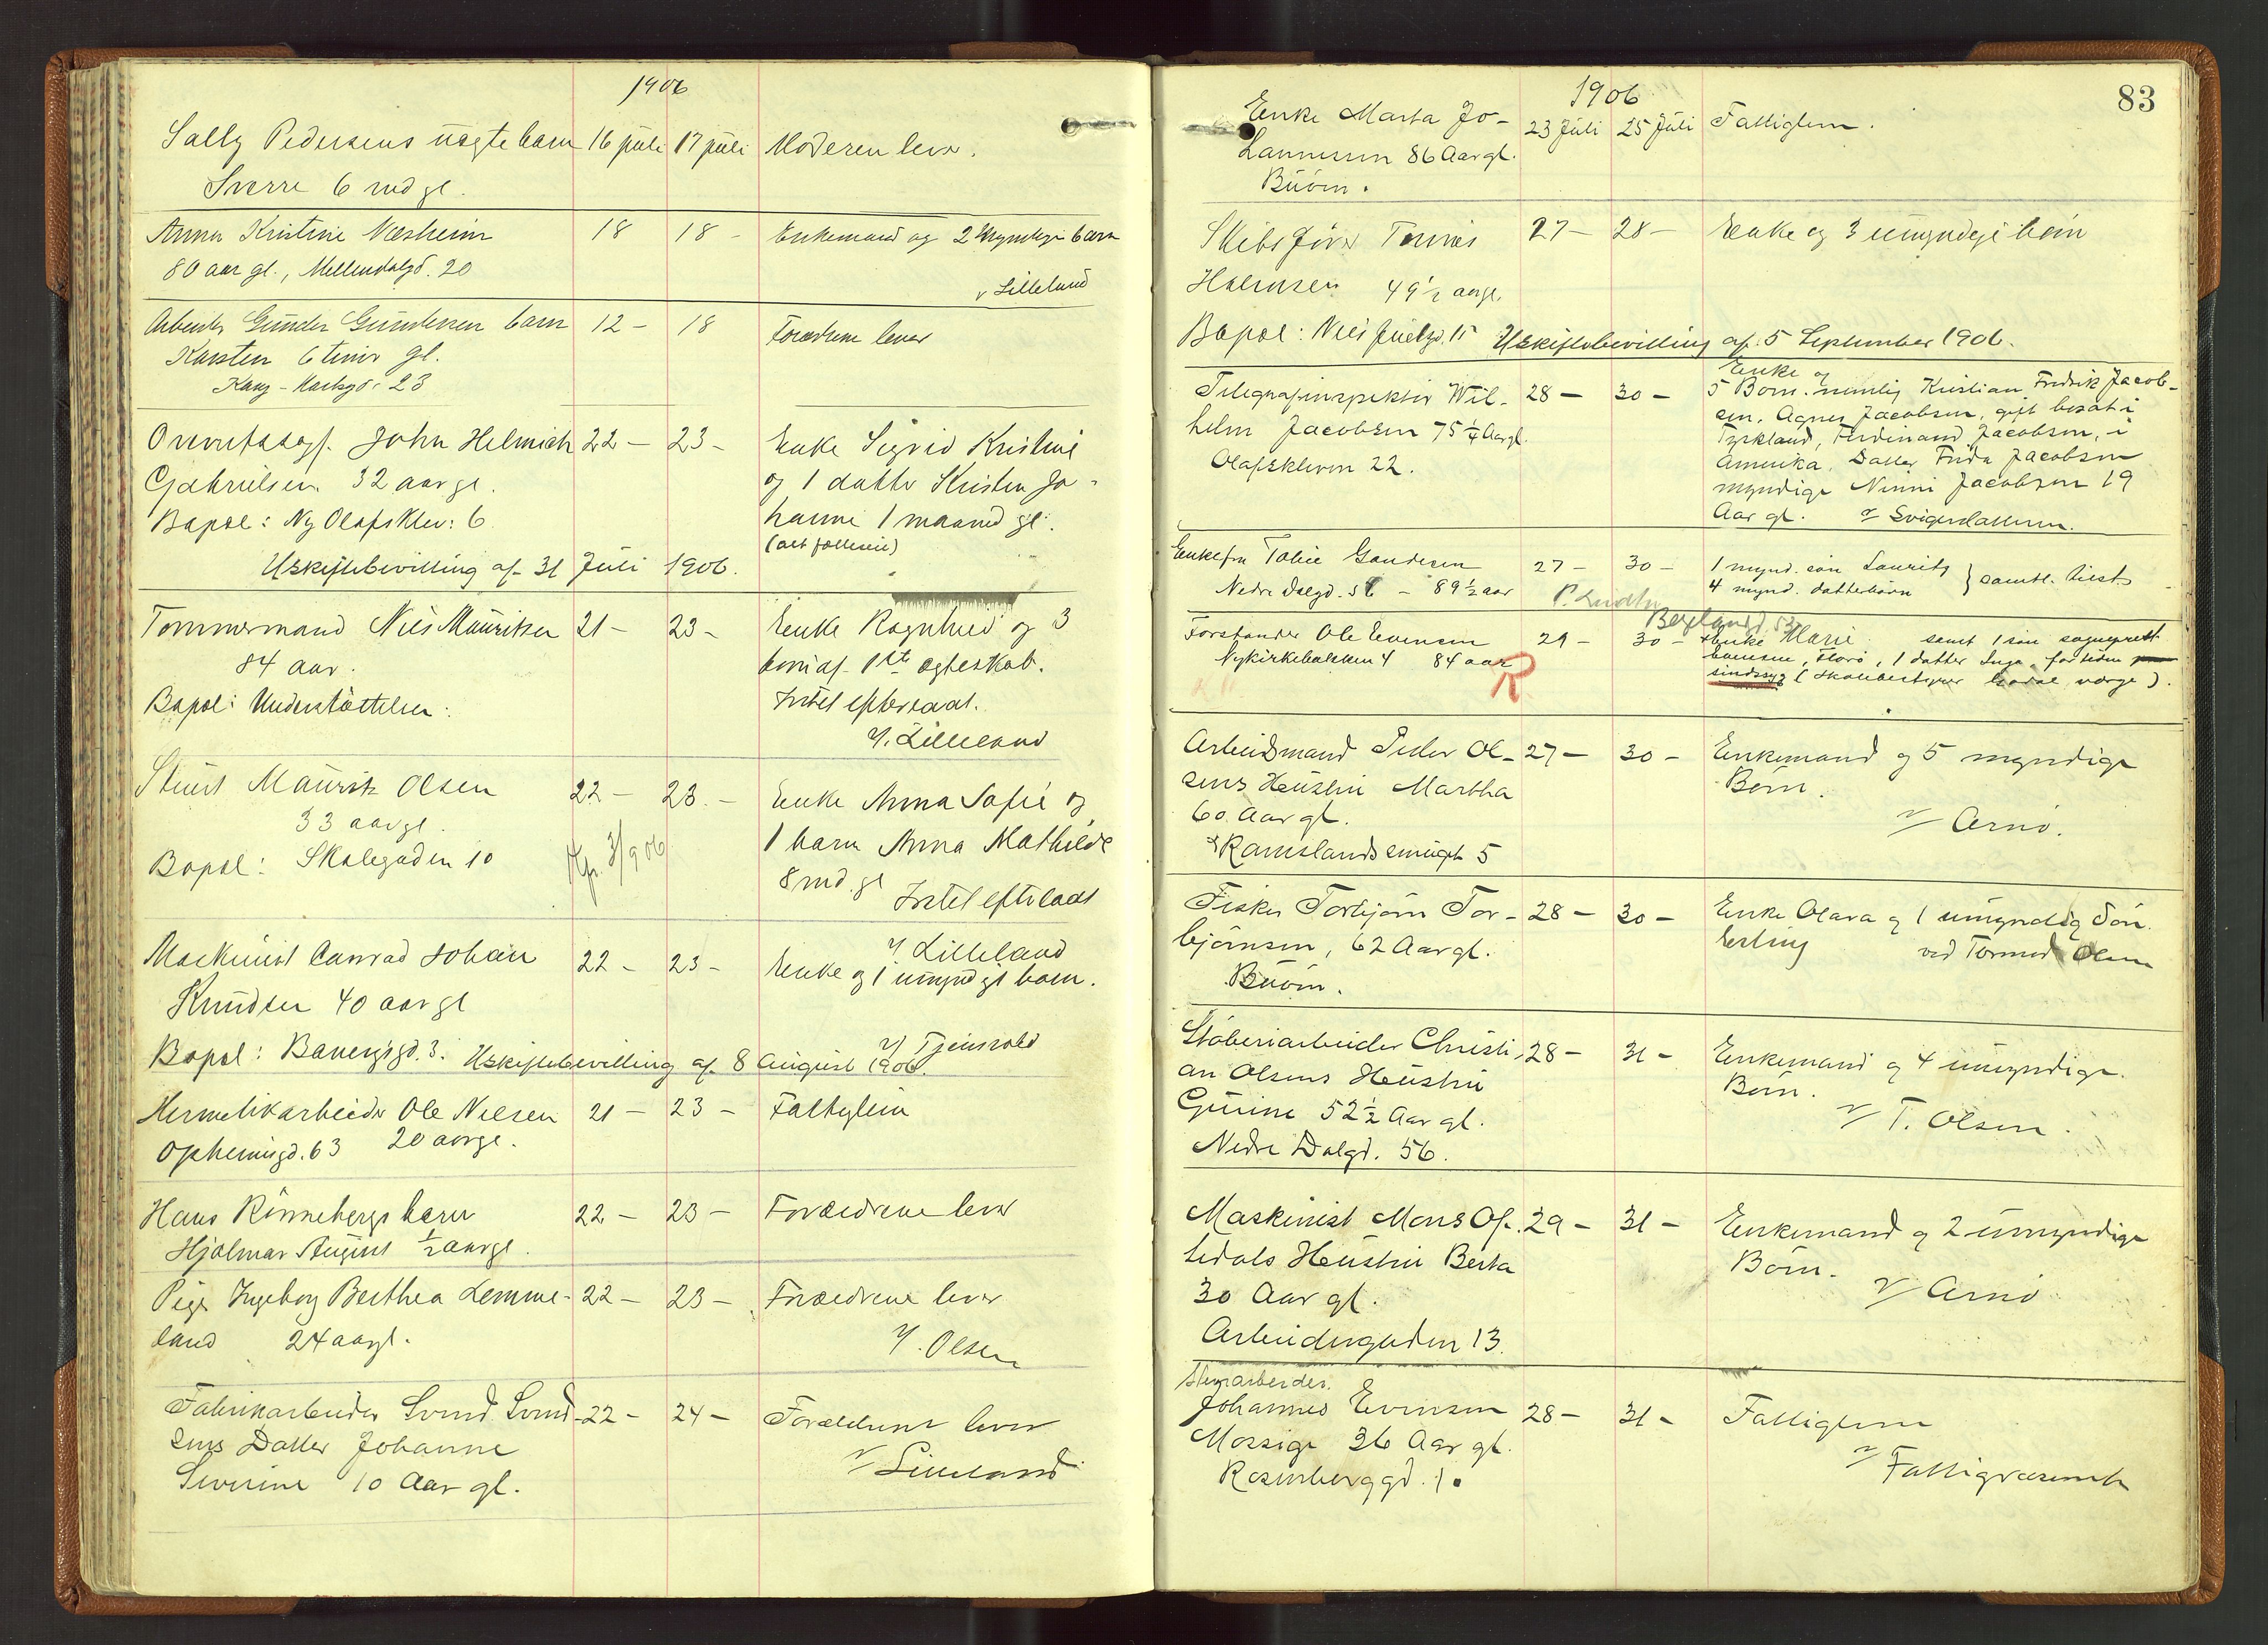 1906
Sally Pedersens uægte barn 16 juli 17 juli Moderen lever.
Sverre 6 md gl.
Anna Kristine Næsheim 18 18 - Enkemand og 2 myndige børn
80 aar gl., Møllendalgd. 20
v Lilleland
Arbeider Gunder Gundersen barn 12 - 18 Forældrene lever
Karsten 6 timer gl.
23
John Helmich 22 - 23 - Enke Sigrid Kristine
Gabrielsen 32 aar gl. og 1 datter Kirsten Jo-
Bopæl: Ny Olafsklev: 6 hanne 1 maaned gl.
Uskiftebevilling af 31 Juli 1906.
Tømmermand Nils Mauritsen 21 - 23 - Enke Ragnhild og 3
84 aar. børn af 1ste ægteskab.
Bopæl: Understøttelsen. Intet efterladt.
v. Lilleland
Stuert Maurits Olsen 22 - 23 - Enke Anna Sofie og
33 aar gl. 1 barn Anna Mathilde
Bopæl: Skolegaden 10 8 md. gl Intet efterladt
v Lilleland
Maskinist Conrad Johan 22 - 23 - Enke og 1 umyndigt barn.
Knudsen 40 aar gl
v Tjensvold
Bopæl: 3. Uskiftebevilling af 8 August 1906.
Hermetikarbeider Ole Nilsen 21 - 23 - Fattiglem
63 20 aar gl.
Hans Rønnebergs barn 22 - 23 - Forældrene lever
Hjalmar August ½ aar gl.
Pige Ingeborg Berthea Lemme- 22 - 23 - Forældrene lever
land 24 aar gl. v. Olsen
Fabrikarbeider Svend Svend- 22 - 24 - Forældrene lever
sens Datter Johanne v Lilleland
Severine 10 Aar gl.
1906 83
Enke Marta Jo- 23 Juli 25 Juli Fattiglem.
hannesen 86 Aar gl.
Buøen.
Skibsfører Tønnes 27 - 28 - Enke og 3 umyndige børn
Halvorsen 49 ½ aar gl.
Bopæl: Niels Juelsgd. 15 Uskiftebevilling af 5 September 1906.
Telegrafinspektør Wil- 28 - 30 - Enke og
5 Børn. nemlig Kristian Fredrik Jacob-
helm Jacobsen 75 ¼ Aar gl. sen, Agnes Jacobsen, gift bosat i
Olafskleven 22. Tyrkland, Ferdinand Jacobsen, i
Amerika, Datter Frida Jacobsen
myndige Ninni Jacobsen 19
Aar gl. v Svigerdatteren.
Enkefru Tobie Gundersen 27 - 30 - 1 mynd. søn Laurits
Nedre Dalgd. - 89 ½ aar 4 mynd. datterbørn } samtl. tilst.
Bergland
Forstander Ole Evensen 29 - 30 - Enke Marie samt 1 søn sogneprest
Nykirkebakken 4 84 aar Evensen, Florø, 1 datter Inga, for tiden
R sindssyg (Skolebestyrer værge).
Arbeidsmand Peder Ol- 27 - 30 - Enkemand og 5 myndige
sens Hustru Martha Børn.
60 Aar gl. v Arnø.
Ramslandssmuget 5
Fisker Torbjørn Tor- 28 - 30 - Enke Olava og 1 umyndig Søn
bjørnsen, 62 Aar gl. Erling ved Tormod Olsen
Buøen.
Støberiarbeider Christi- 28 - 31 - Enkemand og 4 umyndige
an Olsens Hustru Børn.
Gurine 52 ½ Aar gl. v T. Olsen.
Nedre Dalgd. 56.
Maskinist Mons Of- 29 - 31 - Enkemand og 2 umyndige
tedals Hustru Berta Børn.
30 Aar gl. v Arnø
Arbeidergaden 13.
Stenarbeider.
Johannes Evensen 28 - 31 - Fattiglem
Mossige 36 Aar gl. v Fattigvæsenet
Rosenberggd. 1.